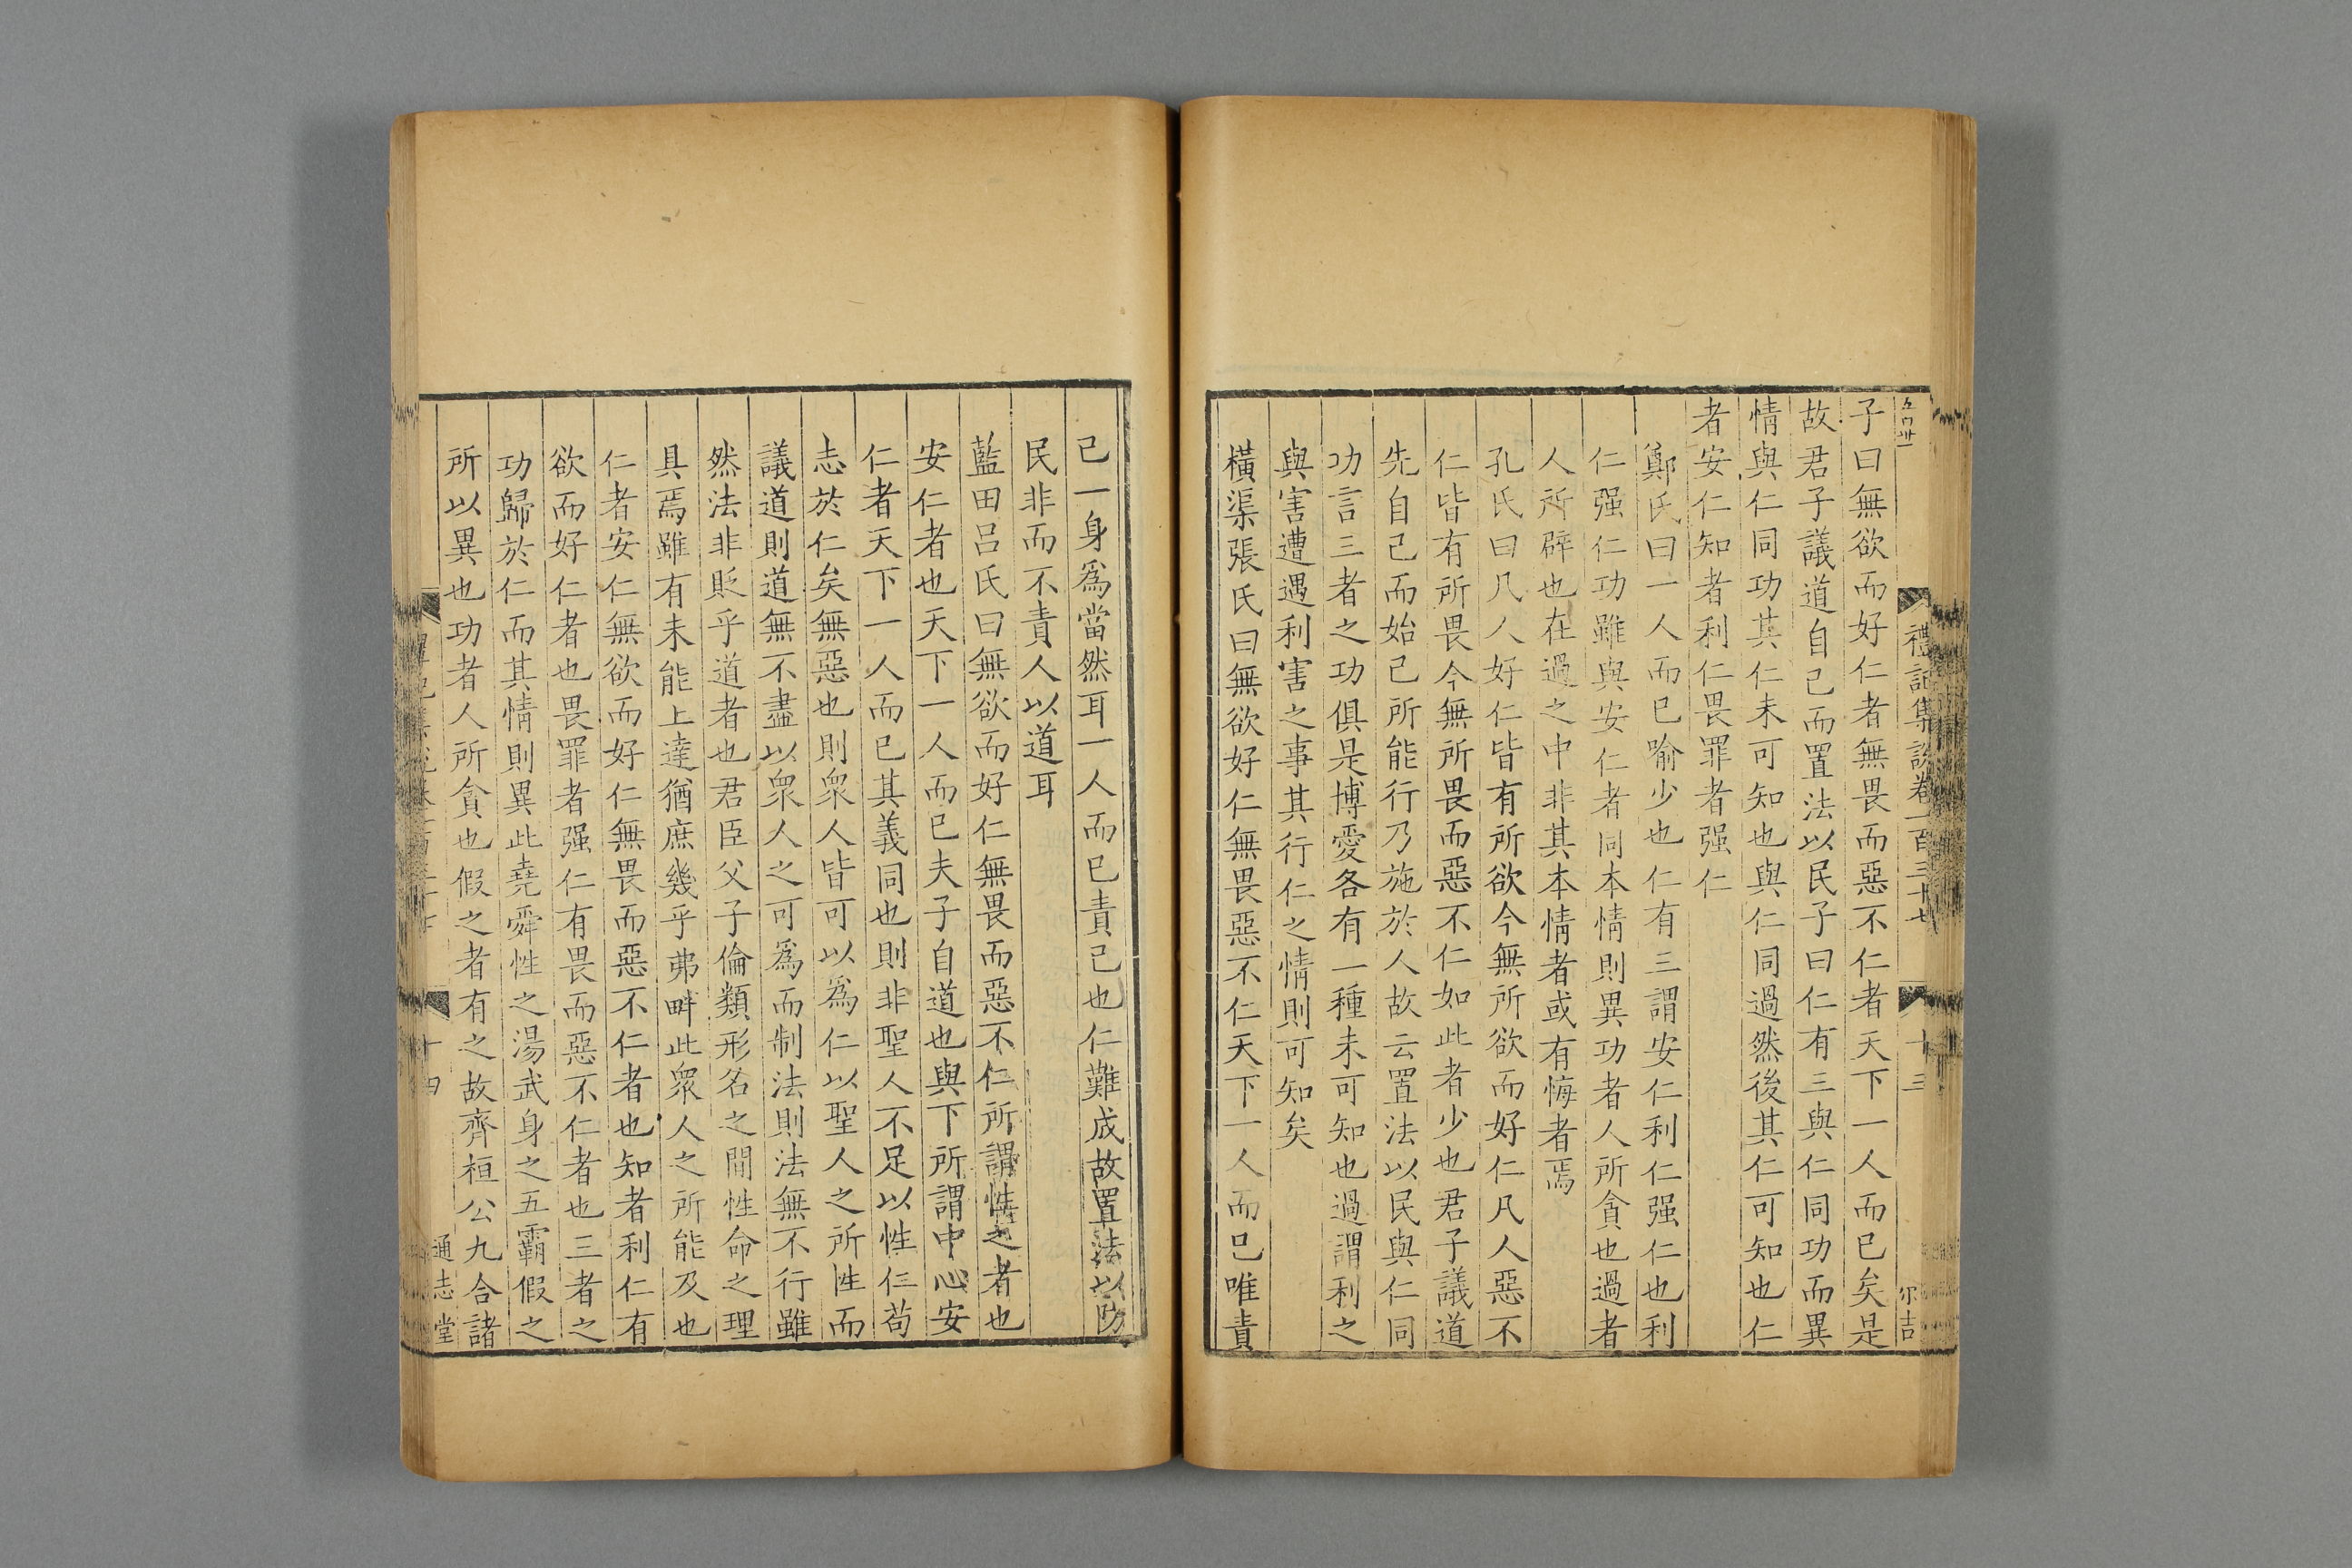 禮記集說卷一百三十七
十三
子曰無欲而好仁者無畏而惡不仁者天下一人而已矣是
故君子議道自己而置法以民子曰仁有三與仁同功而異
情與仁同功其仁未可知也與仁同過然後其仁可知也仁
者安仁知者利仁畏罪者强仁
鄭氏曰一人而已喻少也仁有三謂安仁利仁强仁也利
仁强仁功雖與安仁者同本情則異功者人所貪也過者
人所辟也在過之中非其本情者或有悔者焉
孔氏曰凡人好仁皆有所欲今無所欲而好仁凡人惡不
仁皆有所畏今無所畏而惡不仁如此者少也君子議道
先自己而始己所能行乃施於人故云置法以民與仁同
功言三者之功俱是博愛各有一種未可知也過謂利之
與害遭遇利害之事其行仁之情則可知矣
橫渠張氏曰無欲好仁無畏惡不仁天下一人而已唯責
己一身爲當然耳一人而已責己也仁難成故置法以防
民非而不責人以道耳
藍田呂氏曰無欲而好仁無畏而惡不仁所謂性之者也
安仁者也天下一人而已夫子自道也與下所謂中心安
仁者天下一人而已其義同也則非聖人不足以性仁苟
志於仁矣無惡也則衆人皆可以爲仁以聖人之所性而
議道則道無不盡以衆人之可爲而制法則法無不行雖
然法非貶乎道者也君臣父子倫類形名之間性命之理
具焉雖有未能上達猶庶幾乎弗畔此衆人之所能及也
仁者安仁無欲而好仁無畏而惡不仁者也知者利仁有
欲而好仁者也畏罪者强仁有畏而惡不仁者也三者之
功歸於仁而其情則異此堯舜性之湯武身之五霸假之
所以異也功者人所貪也假之者有之故齊桓公九合諸
十四
通志堂